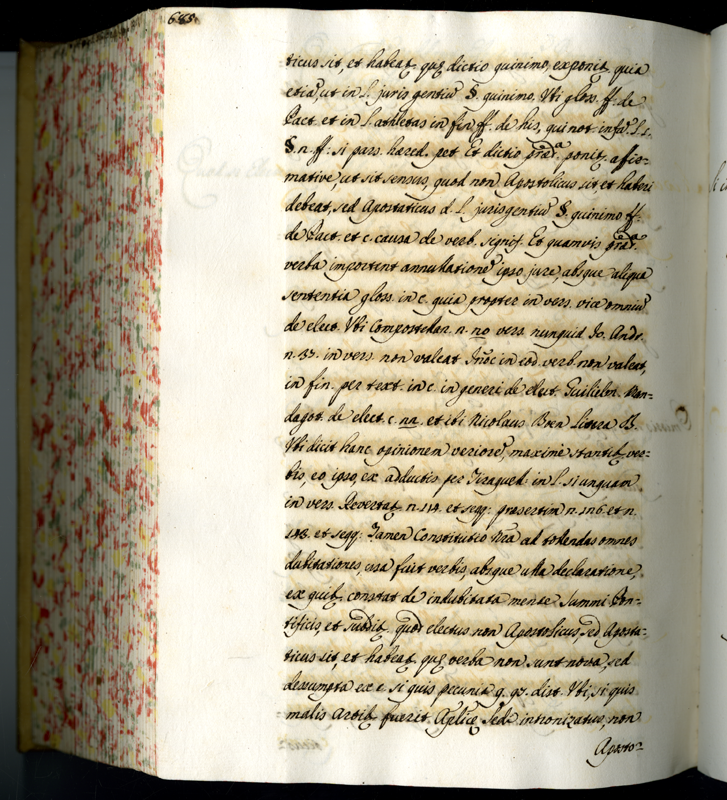 685
ticus sit, et habeat, quę dictio quinimo, exponit, quia
etiā, ut in l. juris gentiū §. quinimo. Ubi gloss. ff. de
Pact. et in l. athletas in fin. ff. de his, qui not. infā. l. 1.
§. n. ff. si pars hæred. pet. Et dictio præt.a ponit affir=
mative, ut sit sensus, quod non Apostolicus sit et haberi
debeat, sed Apostaticus d. l. jurisgentiū §. quinimo ff.
de Pact. et c. causa de verb. signif. Et quamvis præt.a
verba important annullationē ipso jure, absque aliqua
sententia gloss. in c. quia propter in vers. vice omniū
de elect. Ubi Compostellan. n. no vers. nunquid Jo. Andr.
n. 33. in vers. non valeat Inōc in eod. verb. non valeat,
in fin. per text. in c. in generi de elect. Guilielm. Man=
dagot. de elect. c. nn. et ibi Nicolaus Boer Littera B.
Ubi dicit hanc opinionem veriorē, maximè stantib. ver=
bis, eo ipso, ex adductis per Tiraquell. in l. si unquam
in vers. Revertat. n. 114. et seqq. præsertim n. 126. et n.
148. et seqq. Tamen Constitutio nrā ad tollendas omnes
dubitationes, usa fuit verbis, absque ulla declaratione,
ex quib. constat de indubitata mente Summi Pon=
tificis, et subdit, quòd electus non Apostolicus, sed Aposta=
ticus sit, et habeat, quę verba non sunt nova, sed
desumpta ex c. si quis pecunia q. 79. dist. Ubi, si quis
malis Artib. fuerit Aplicę Sedi intronizatus, non
Aposto=